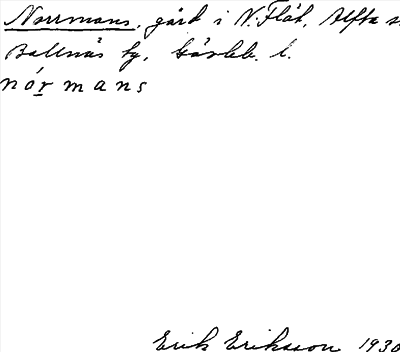 Norrmans, gård i N. Flät, Alfta s
Bollnäs tg, Gävleb. l.
nór mans
Erik Eriksson 1930